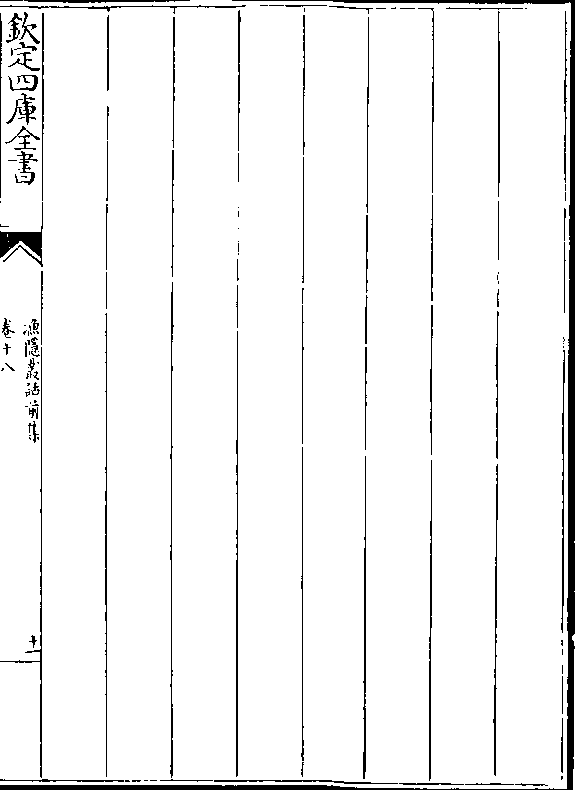 欽定四庫全書
漁隱叢話前集
卷十八
十